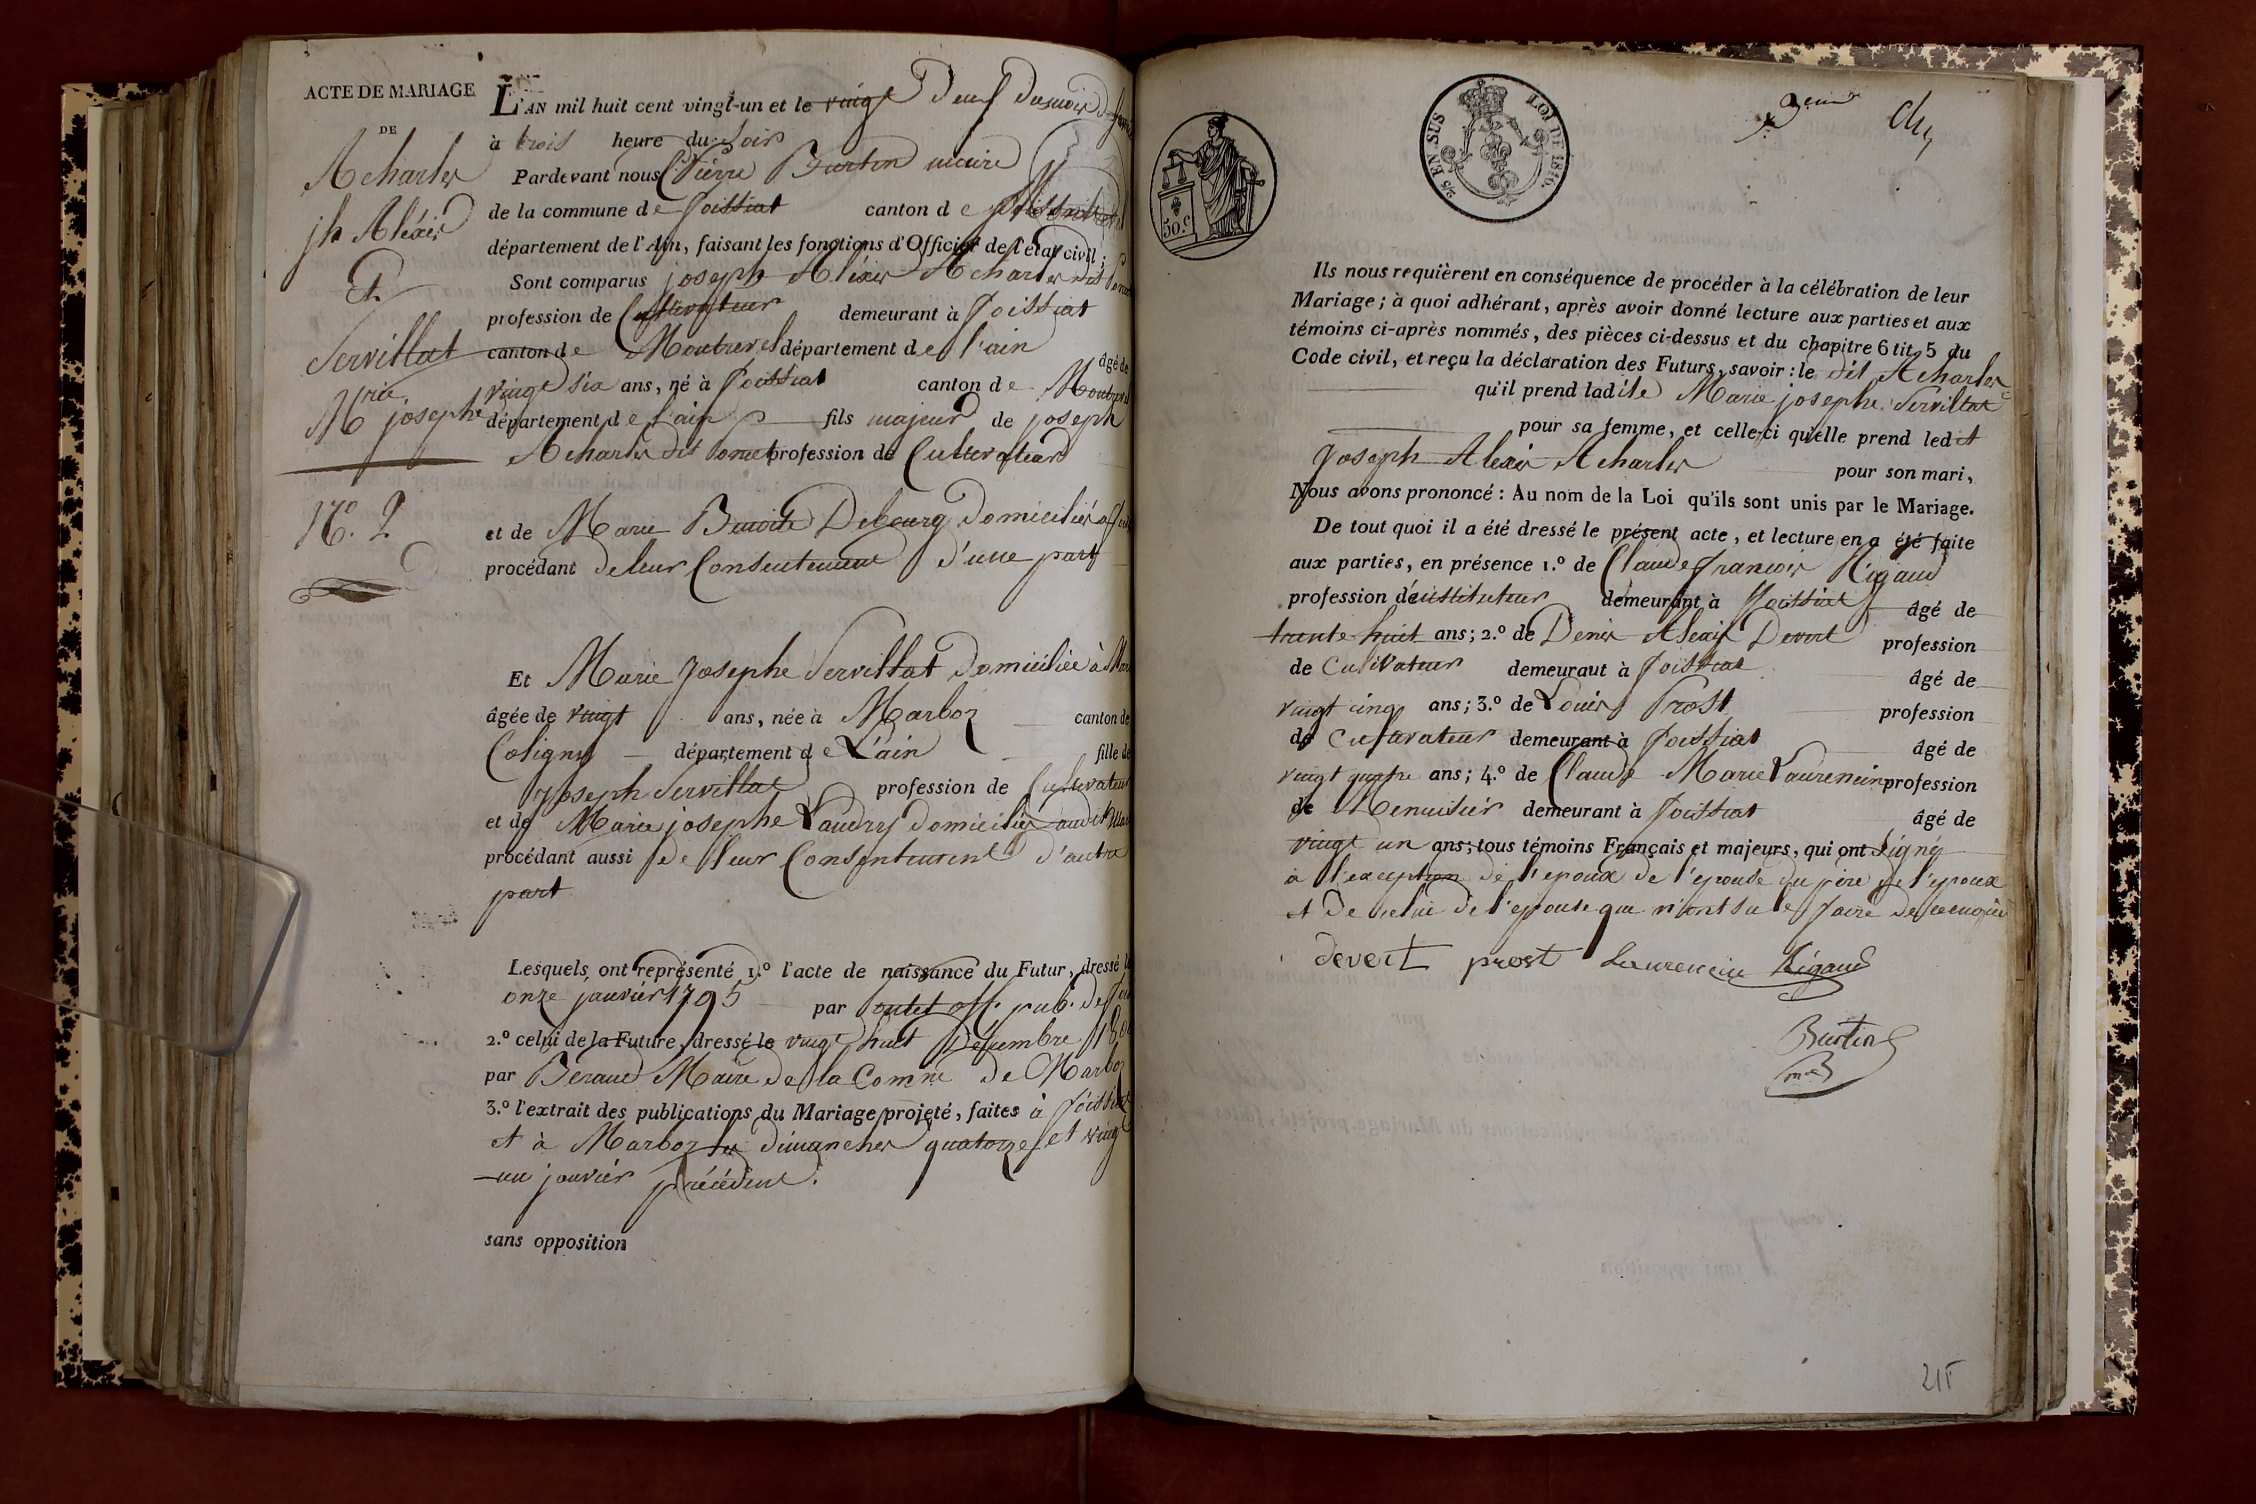 ACTE DE MARIAGE
DE
Acharles
jh Aléxis
Et
Servillat
Mrie josephe
N.º 2.
L'AN mil huit cent vingt-un et le vingt deux du mois de
à trois heure du Soir
Pardevant nous Pierre Burtin maire
de la commune de foissiat canton de
département de l'Ain, faisant les fonctions d'Officier de l'état civil;
Sont comparus joseph Aléxis Acharles dit
profession de Cultivateur demeurant à foissiat
canton de Montrevel département de l'ain âgé de
vingt six ans, né à foissiat canton de Montrevel
département de l'ain fils majeur de joseph
Acharles dit profession de Cultivateur
et de Marie Benoite Debourg Domiciliés a
procédant de leur Consentement d'une part
Et Marie josephe Servillat Domiciliée à
âgée de vingt ans, née à Marboz canton de
Coligny département de L'ain fille de
joseph Servillat profession de Cultivateur
et de Marie josephe Laudry domiciliés audit
procédant aussi de leur Consentement d'autre
part
Lesquels ont représenté 1.º l'acte de naissance du Futur, dressé le
onze janvier 1795 par off. pub. de
2.º celui de la Future, dressé le vingt huit Décembre
par Beraud Maire de la Comne de Marboz
3.º l'extrait des publications du Mariage projeté, faites à foissiat
et à Marboz les dimanches quatorze et vingt
un janvier précédent.
sans opposition
25 EN SUS LOI DE 1816.
50.c
Ils nous requièrent en conséquence de procéder à la célébration de leur
Mariage; à quoi adhérant, après avoir donné lecture aux parties et aux
témoins ci-après nommés, des pièces ci-dessus et du chapitre 6 tit. 5 du
Code civil, et reçu la déclaration des Futurs, savoir: le dit Acharles
qu'il prend ladite Marie josephe Servillat
pour sa femme, et celle-ci qu'elle prend ledit
Joseph Alexis Acharles pour son mari,
Nous avons prononcé: Au nom de la Loi qu'ils sont unis par le Mariage.
De tout quoi il a été dressé le présent acte, et lecture en a été faite
aux parties, en présence 1.º de Claude françois Rigaud
profession d'instituteur demeurant à foissiat âgé de
trente huit ans; 2.º de Denis Alexis Devert profession
de Cultivateur demeuraut à foissiat âgé de
vingt cinq ans; 3.º de Louis Prost profession
de Cultivateur demeurant à foissiat âgé de
vingt quatre ans; 4.º de Claude Marie Laurencin profession
de Menuisier demeurant à foissiat âgé de
vingt un ans; tous témoins Français et majeurs, qui ont Signé
à l'exception de l'epoux de l'epouse du père de l'epoux
et de celui de l'epouse qui n'ont su le faire de ce enquis
devert prost Laurencin Rigaud
Burtin
215